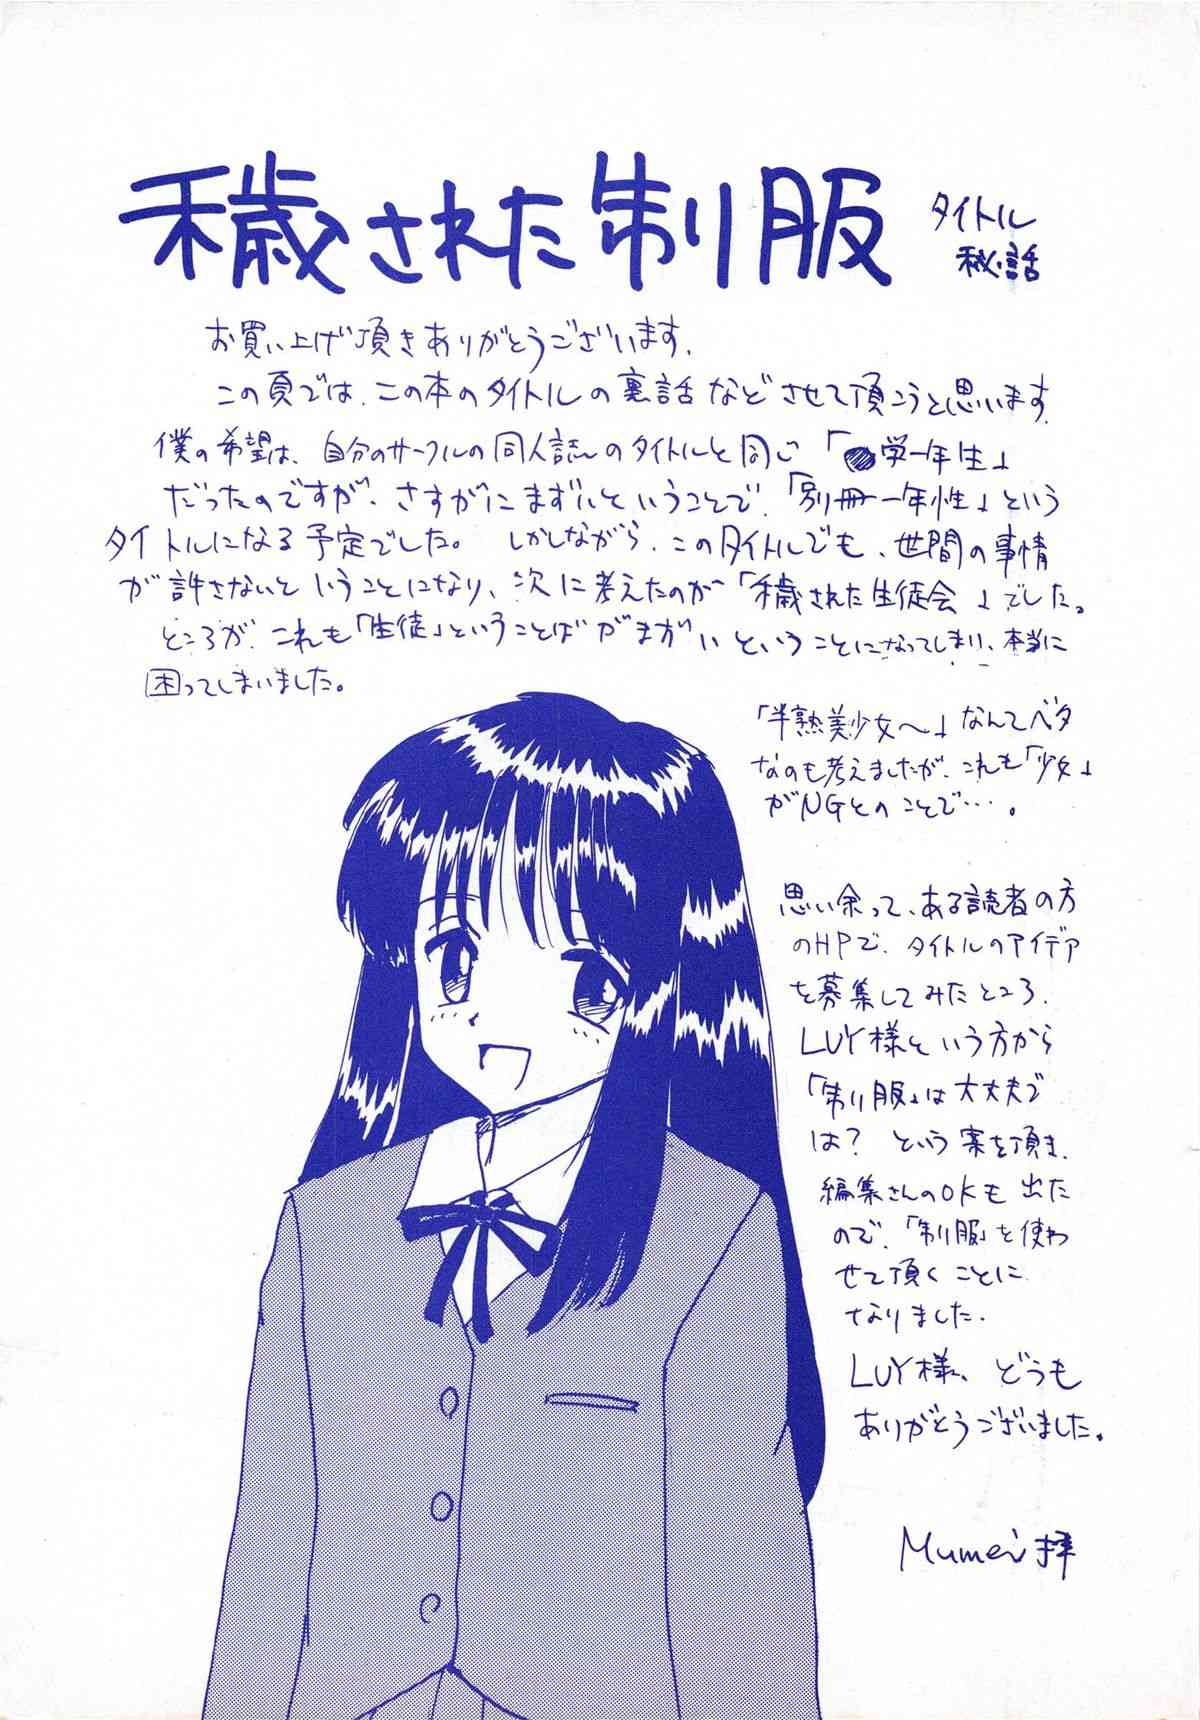 穢された制服
タイトル
秘話
お買い上げ頂きありがとうございます.
この頁では、この本のタイトルの裏話などさせて頂こうと思います.
僕の希望は、自分のサークルの同人誌のタイトルと同じ「●学一年生」
だったのですが、さすがにまずいということで、「別冊一年性」という
タイトルになる予定でした。しかしながら、このタイトルでも、世間の事情
が許さないということになり、次に考えたのが「穢された生徒会」でした。
ところが、これも「生徒」ということばがまずいということになってしまい、本当に
困ってしまいました。
「半熟美少女〜」なんてベタ
なのも考えましたが、これも「少女」
がNGとのことで…。
思い余って、ある読者の方
のHPで、タイトルのアイデア
を募集してみたところ、
LUY様という方から
「制服」は大丈夫で
は？という案を頂き、
編集さんのOKも出た
ので、「制服」を使わ
せて頂くことに
なりました.
LUY様、どうも
ありがとうございました。
Mumei拝